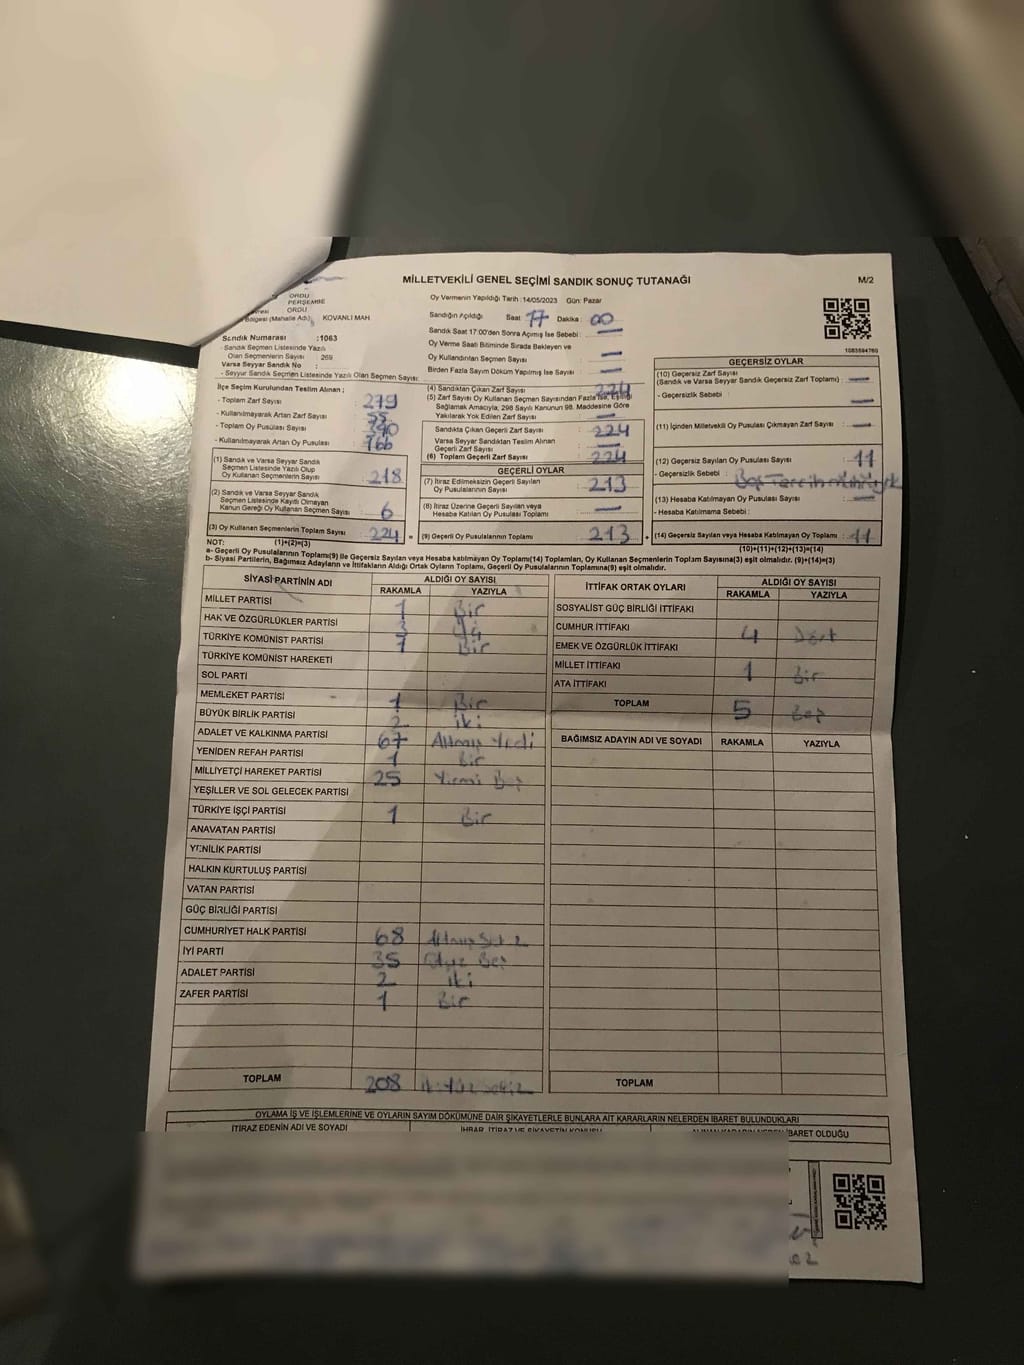 MİLLETVEKİLİ GENEL SEÇİMİ SANDIK SONUÇ TUTANAĞI
M/2
ORDU
PERŞEMBE
ORDU
Bölgesi (Mahalle Adı) KOVANLI MAH
Oy Vermenin Yapıldığı Tarih :14/05/2023 Gün: Pazar
Sandığın Açıldığı Saat 17 Dakika : 00
Sandık Saat 17:00'den Sonra Açmış İse Sebebi : —
Oy Verme Saati Bitiminde Sırada Bekleyen ve
Oy Kullandırılan Seçmen Sayısı : —
Birden Fazla Sayım Döküm Yapılmış İse Sayısı : —
1083594760
Sandık Numarası :1063
- Sandık Seçmen Listesinde Yazılı
Olan Seçmenlerin Sayısı : 269
Varsa Seyyar Sandık No :
- Seyyar Sandık Seçmen Listesinde Yazılı Olan Seçmen Sayısı:
İlçe Seçim Kurulundan Teslim Alınan ;
- Toplam Zarf Sayısı : 279
- Kullanılmayarak Artan Zarf Sayısı : 55
- Toplam Oy Pusulası Sayısı : 390
- Kullanılmayarak Artan Oy Pusulası : 166
(1) Sandık ve Varsa Seyyar Sandık
Seçmen Listesinde Yazılı Olup
Oy Kullanan Seçmenlerin Sayısı : 218
(2) Sandık ve Varsa Seyyar Sandık
Seçmen Listesinde Kayıtlı Olmayan
Kanun Gereği Oy Kullanan Seçmen Sayısı : 6
(3) Oy Kullanan Seçmenlerin Toplam Sayısı : 224 =
(4) Sandıktan Çıkan Zarf Sayısı : 224
(5) Zarf Sayısı Oy Kullanan Seçmen Sayısından Fazla ise, Eşitliği
Sağlamak Amacıyla, 298 Sayılı Kanunun 98. Maddesine Göre
Yakılarak Yok Edilen Zarf Sayısı : —
Sandıkta Çıkan Geçerli Zarf Sayısı : 224
Varsa Seyyar Sandıktan Teslim Alınan
Geçerli Zarf Sayısı : —
(6) Toplam Geçerli Zarf Sayısı : 224
GEÇERLİ OYLAR
(7) İtiraz Edilmeksizin Geçerli Sayılan
Oy Pusulalarının Sayısı : 213
(8) İtiraz Üzerine Geçerli Sayılan veya
Hesaba Katılan Oy Pusulası Toplamı : —
(9) Geçerli Oy Pusulalarının Toplamı : 213 +
GEÇERSİZ OYLAR
(10) Geçersiz Zarf Sayısı
(Sandık ve Varsa Seyyar Sandık Geçersiz Zarf Toplamı) : —
- Geçersizlik Sebebi : —
(11) İçinden Milletvekili Oy Pusulası Çıkmayan Zarf Sayısı : —
(12) Geçersiz Sayılan Oy Pusulası Sayısı : 11
- Geçersizlik Sebebi :
(13) Hesaba Katılmayan Oy Pusulası Sayısı : —
- Hesaba Katılmama Sebebi :
(14) Geçersiz Sayılan veya Hesaba Katılmayan Oy Toplamı : 11
NOT: (1)+(2)=(3)
(10)+(11)+(12)+(13)=(14)
a- Geçerli Oy Pusulalarının Toplamı(9) ile Geçersiz Sayılan veya Hesaba katılmayan Oy Toplamı(14) Toplamları, Oy Kullanan Seçmenlerin Toplam Sayısına(3) eşit olmalıdır. (9)+(14)=(3)
b- Siyasi Partilerin, Bağımsız Adayların ve İttifakların Aldığı Ortak Oyların Toplamı, Geçerli Oy Pusulalarının Toplamına(9) eşit olmalıdır.
SİYASİ PARTİNİN ADI ALDIĞI OY SAYISI
RAKAMLA YAZIYLA
MİLLET PARTİSİ 1 Bir
HAK VE ÖZGÜRLÜKLER PARTİSİ 3 Üç
TÜRKİYE KOMÜNİST PARTİSİ 1 Bir
TÜRKİYE KOMÜNİST HAREKETİ
SOL PARTİ
MEMLEKET PARTİSİ 1 Bir
BÜYÜK BİRLİK PARTİSİ 2 iki
ADALET VE KALKINMA PARTİSİ 67 Altmış Yedi
YENİDEN REFAH PARTİSİ 1 Bir
MİLLİYETÇİ HAREKET PARTİSİ 25 Yirmi Beş
YEŞİLLER VE SOL GELECEK PARTİSİ
TÜRKİYE İŞÇİ PARTİSİ 1 Bir
ANAVATAN PARTİSİ
YENİLİK PARTİSİ
HALKIN KURTULUŞ PARTİSİ
VATAN PARTİSİ
GÜÇ BİRLİĞİ PARTİSİ
CUMHURİYET HALK PARTİSİ 68 Altmış Sekiz
İYİ PARTİ 35 Otuz Beş
ADALET PARTİSİ 2 iki
ZAFER PARTİSİ 1 Bir
TOPLAM 208 ikiyüz sekiz
İTTİFAK ORTAK OYLARI ALDIĞI OY SAYISI
RAKAMLA YAZIYLA
SOSYALİST GÜÇ BİRLİĞİ İTTİFAKI
CUMHUR İTTİFAKI 4 Dört
EMEK VE ÖZGÜRLÜK İTTİFAKI
MİLLET İTTİFAKI 1 Bir
ATA İTTİFAKI
TOPLAM 5 Beş
BAĞIMSIZ ADAYIN ADI VE SOYADI RAKAMLA YAZIYLA
TOPLAM
OYLAMA İŞ VE İŞLEMLERİNE VE OYLARIN SAYIM DÖKÜMÜNE DAİR ŞİKAYETLERLE BUNLARA AİT KARARLARIN NELERDEN İBARET BULUNDUKLARI
İTİRAZ EDENİN ADI VE SOYADI İHBAR, İTİRAZ VE ŞİKAYETİN KONUSU İBARET OLDUĞU